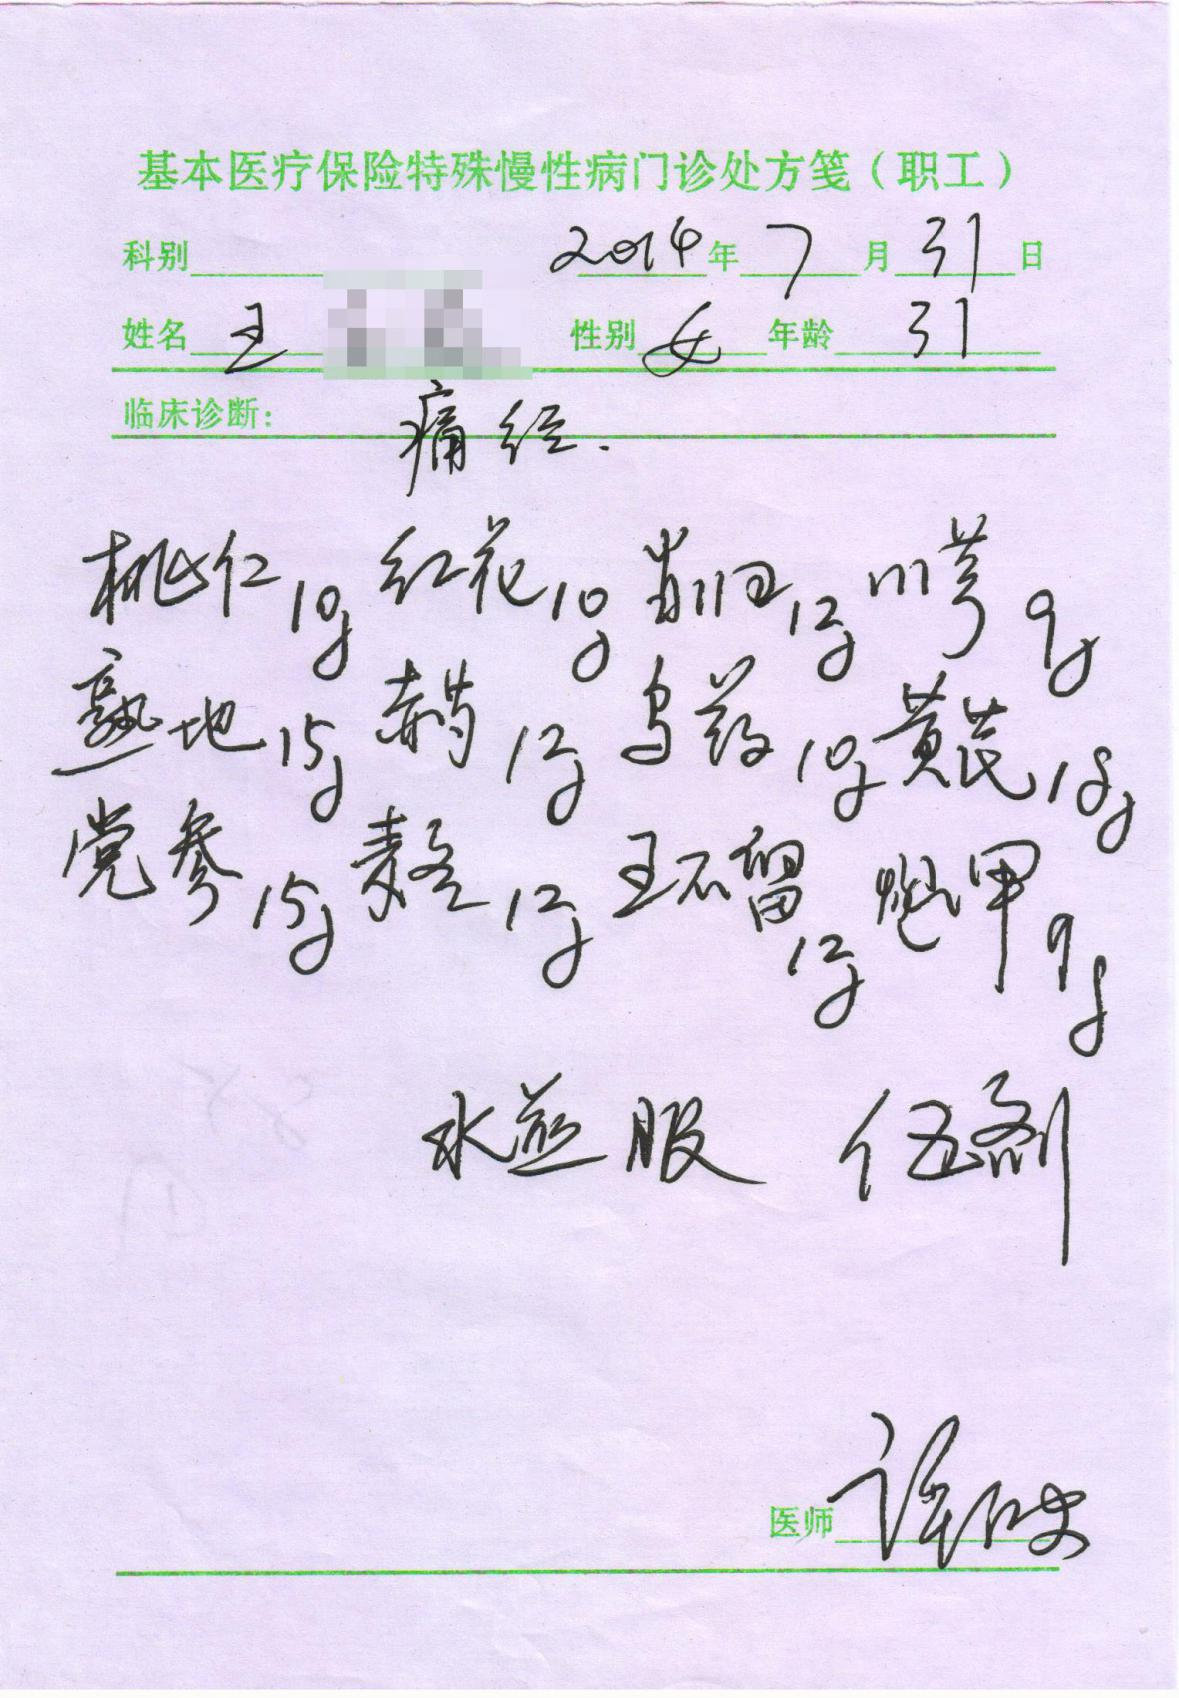 基本医疗保险特殊慢性病门诊处方笺（职工）
科别 2014年7月31日
姓名 王 性别 女 年龄 31
临床诊断： 痛经.
桃仁10g 红花10g 当归12g 川芎9g
熟地15g 赤芍12g 乌药10g 黄芪18g
党参15g 麦冬12g 王不留12g 炮甲9g
水煎服 伍剂
医师 许